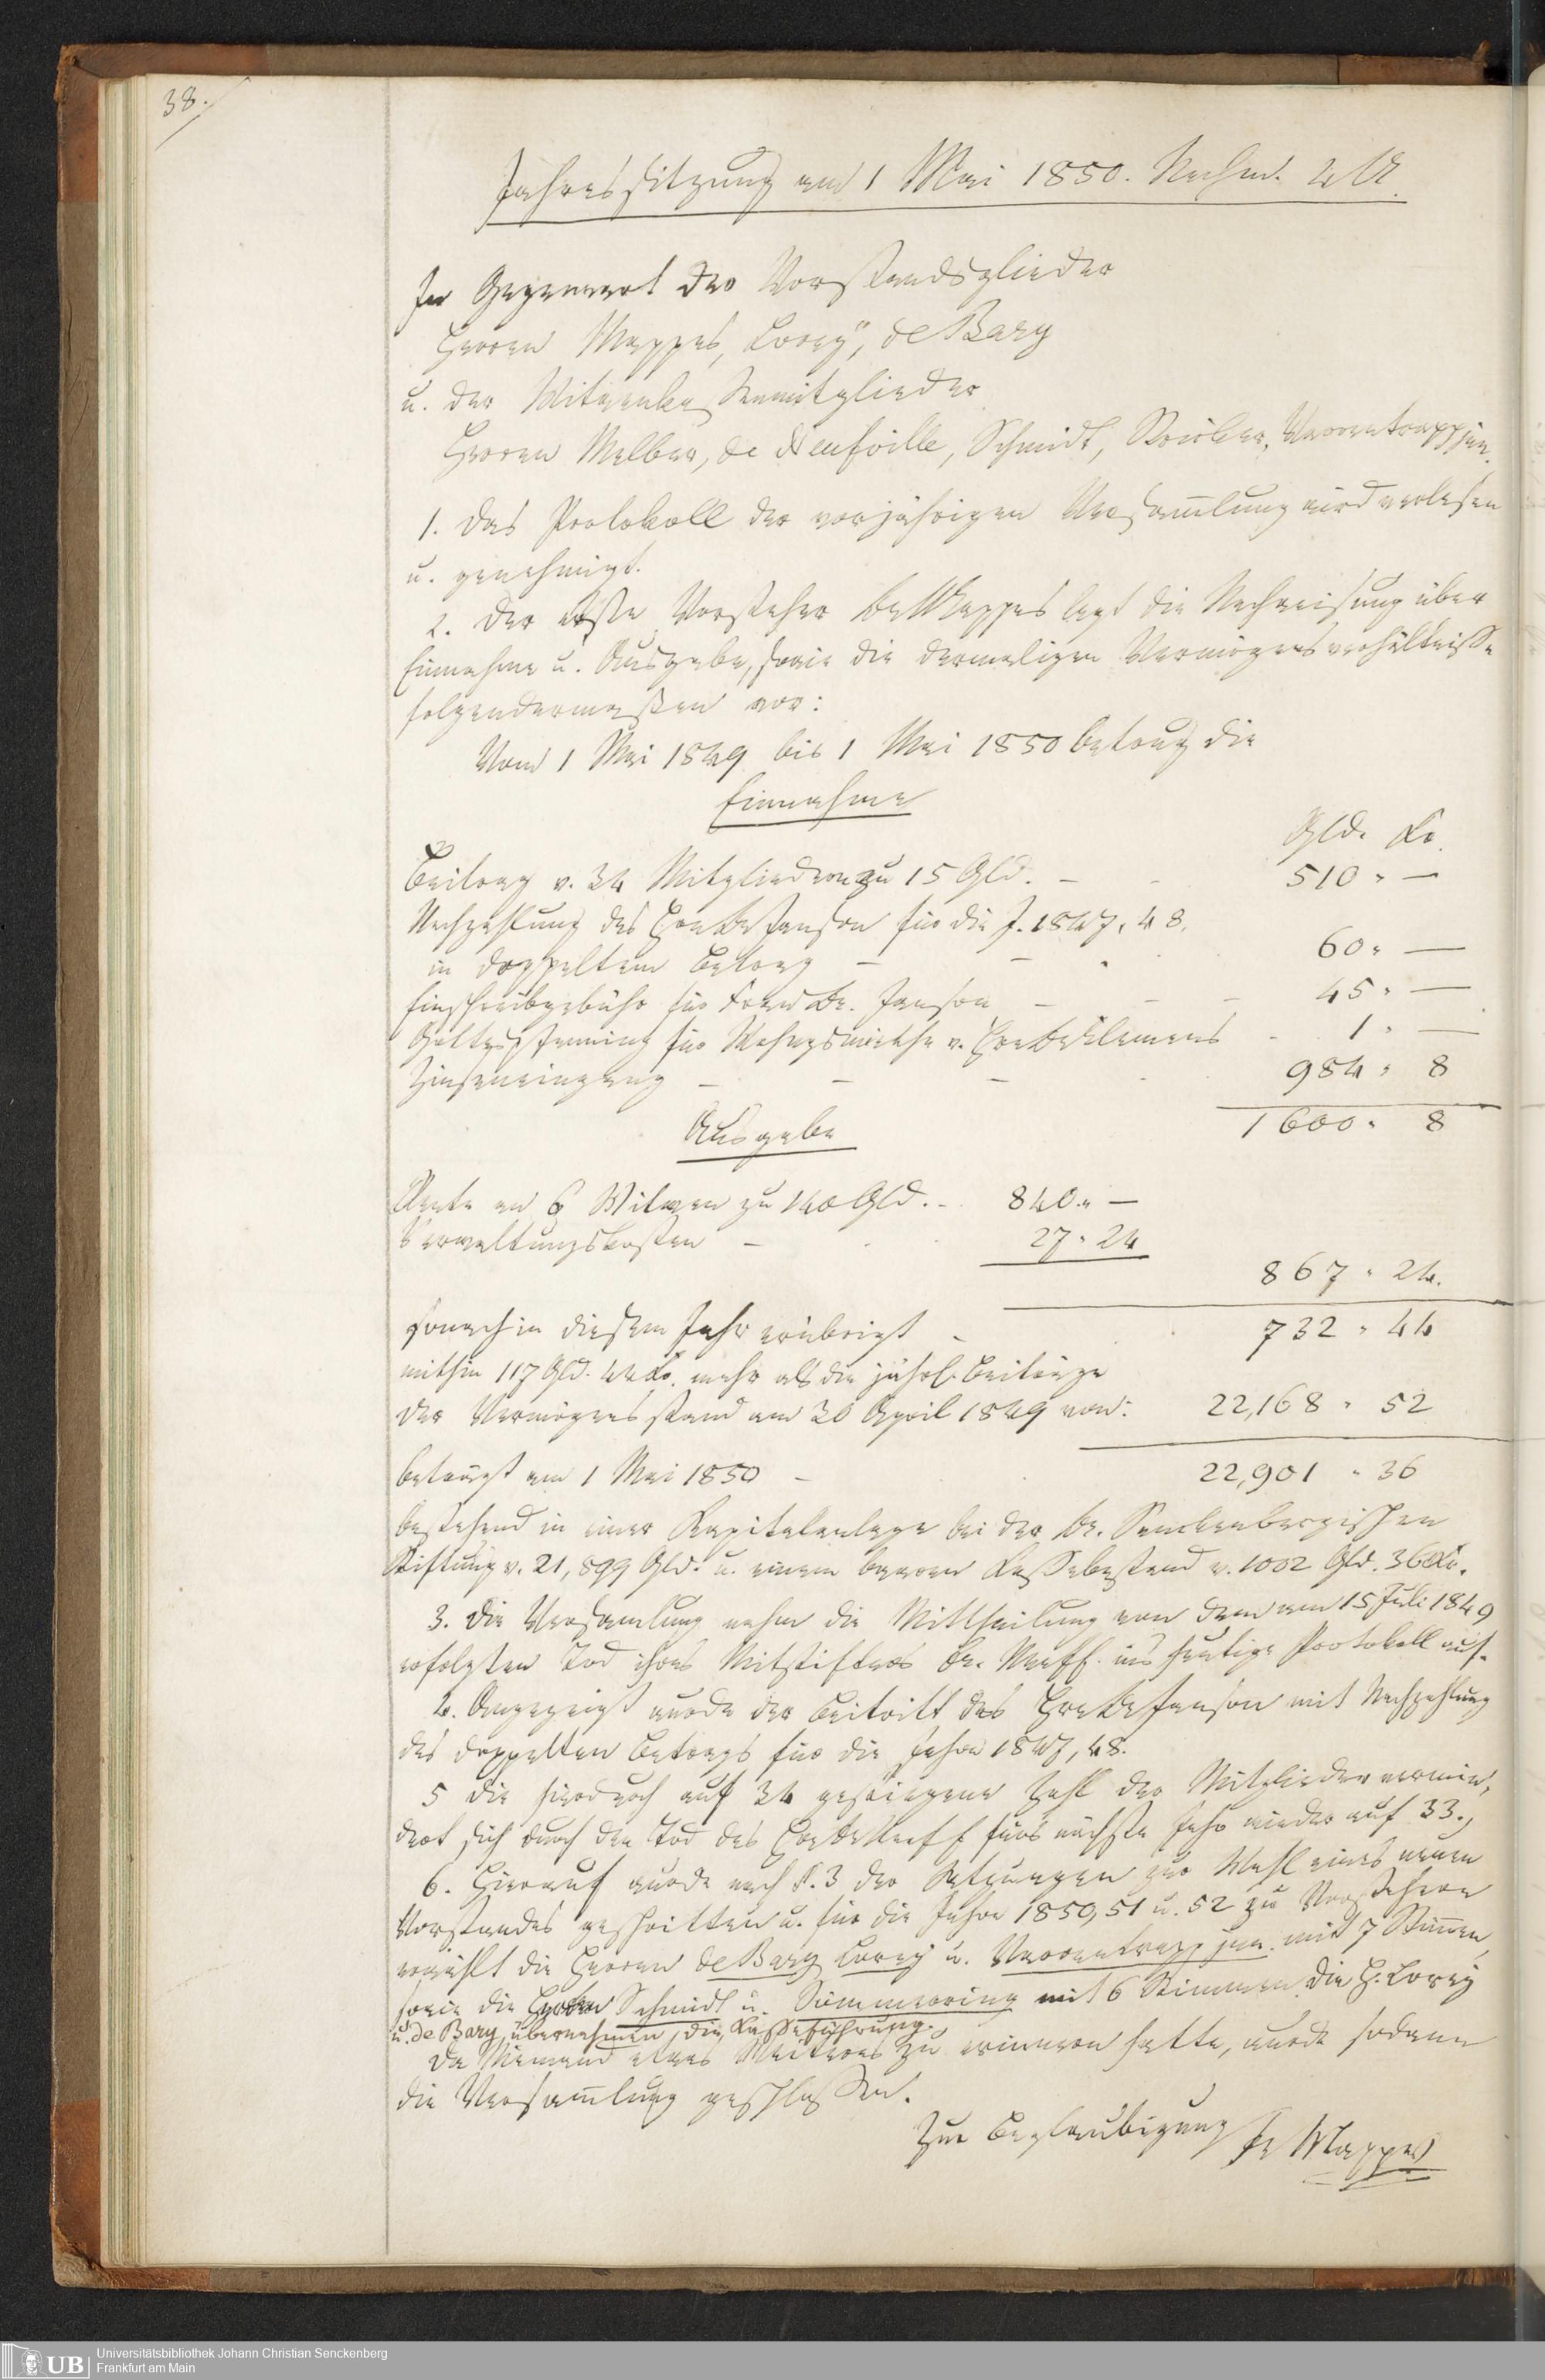 38.
Jahressitzung am 1 Mai 1850. Nachm. 4 U.
In Gegenwart der Vorstandsglieder
Herren Mappes, Lorey, de Bary
u. der Mitglieder
Herren Melber, de Neufville, Schmidt, Stricker, Varrentrapp jun.
1. Das Protokoll der vorjährigen Versam̄lung wird verlesen
u. genehmigt.
2. Der erste Vorsteher Dr Mappes legt die Nachweisung über
Einnahme u. Ausgabe, sowie die dermaligen Vermögensverhältnisse
folgendermassen vor:
Vom 1 Mai 1849 bis 1 Mai 1850 betrug die
Einnahme
Gld. Kr.
Beitrag v. 34 Mitgliedern zu 15 Gld. – 510 " —
Nachzahlung des Hrn Dr Janson für die J. 1847, 48.
in doppeltem Betrag – – 60 " —
Einschreibgebühr für Frau Dr. Janson – – – 45 " —
Gottespfenning für v. Hrn Dr Clemens 1 " —
Zinseneingang – – – 984 " 8
1600 " 8
Ausgabe
Rente an 6 Witwen zu 140 Gld. – 840 " —
Verwaltungskosten – 27 " 24
867 " 24.
sonach in diesem Jahr erübrigt – 732 " 44
mithin 117 Gld. 44 Kr. mehr als die jährl. Beiträge
der Vermögensstand am 30 April 1849 von: 22,168 " 52
beträgt am 1 Mai 1850 – 22,901 " 36
bestehend in einer Kapitalanlage bei der Dr. Senckenbergischen
Stiftung v. 21,899 Gld. u. einem baaren Kassebestand v. 1002 Gld. 36 Kr.
3. Die Versamlung nahm die Mittheilung von dem am 15 Juli 1849
erfolgten Tod ihres Mitstifters Dr. Neeff ins heutige Protokoll auf.
4. Angezeigt wurde der Beitritt des Hrn Dr Janson mit Nachzahlung
des doppelten Betrags für die Jahre 1847, 48.
5 Die hierdurch auf 34 gestiegene Zahl der Mitglieder vermin,
dert sich durch den Tod des Hrn Dr Neeff fürs nächste Jahr wieder auf 33.
6. Hierauf wurde nach §. 3 der Satzungen zur Wahl eines neuen
Vorstandes geschritten u. für die Jahre 1850, 51 u. 52 zu Vorstehern
erwählt die Herren de Bary Lorey u. Varrentrapp jun. mit 7 Stim̄en,
sowie die Herren Schmidt u. Sömmerring mit 6 Stimmen. Die H. Lorey
u. de Bary übernahmen die Kasseführung.
Da Niemand etwas Weiteres zu erinnern hatte, wurde sodann
die Versam̄lung geschlossen.
Zur Beglaubigung Dr Mappes
UB
Universitätsbibliothek Johann Christian Senckenberg
Frankfurt am Main